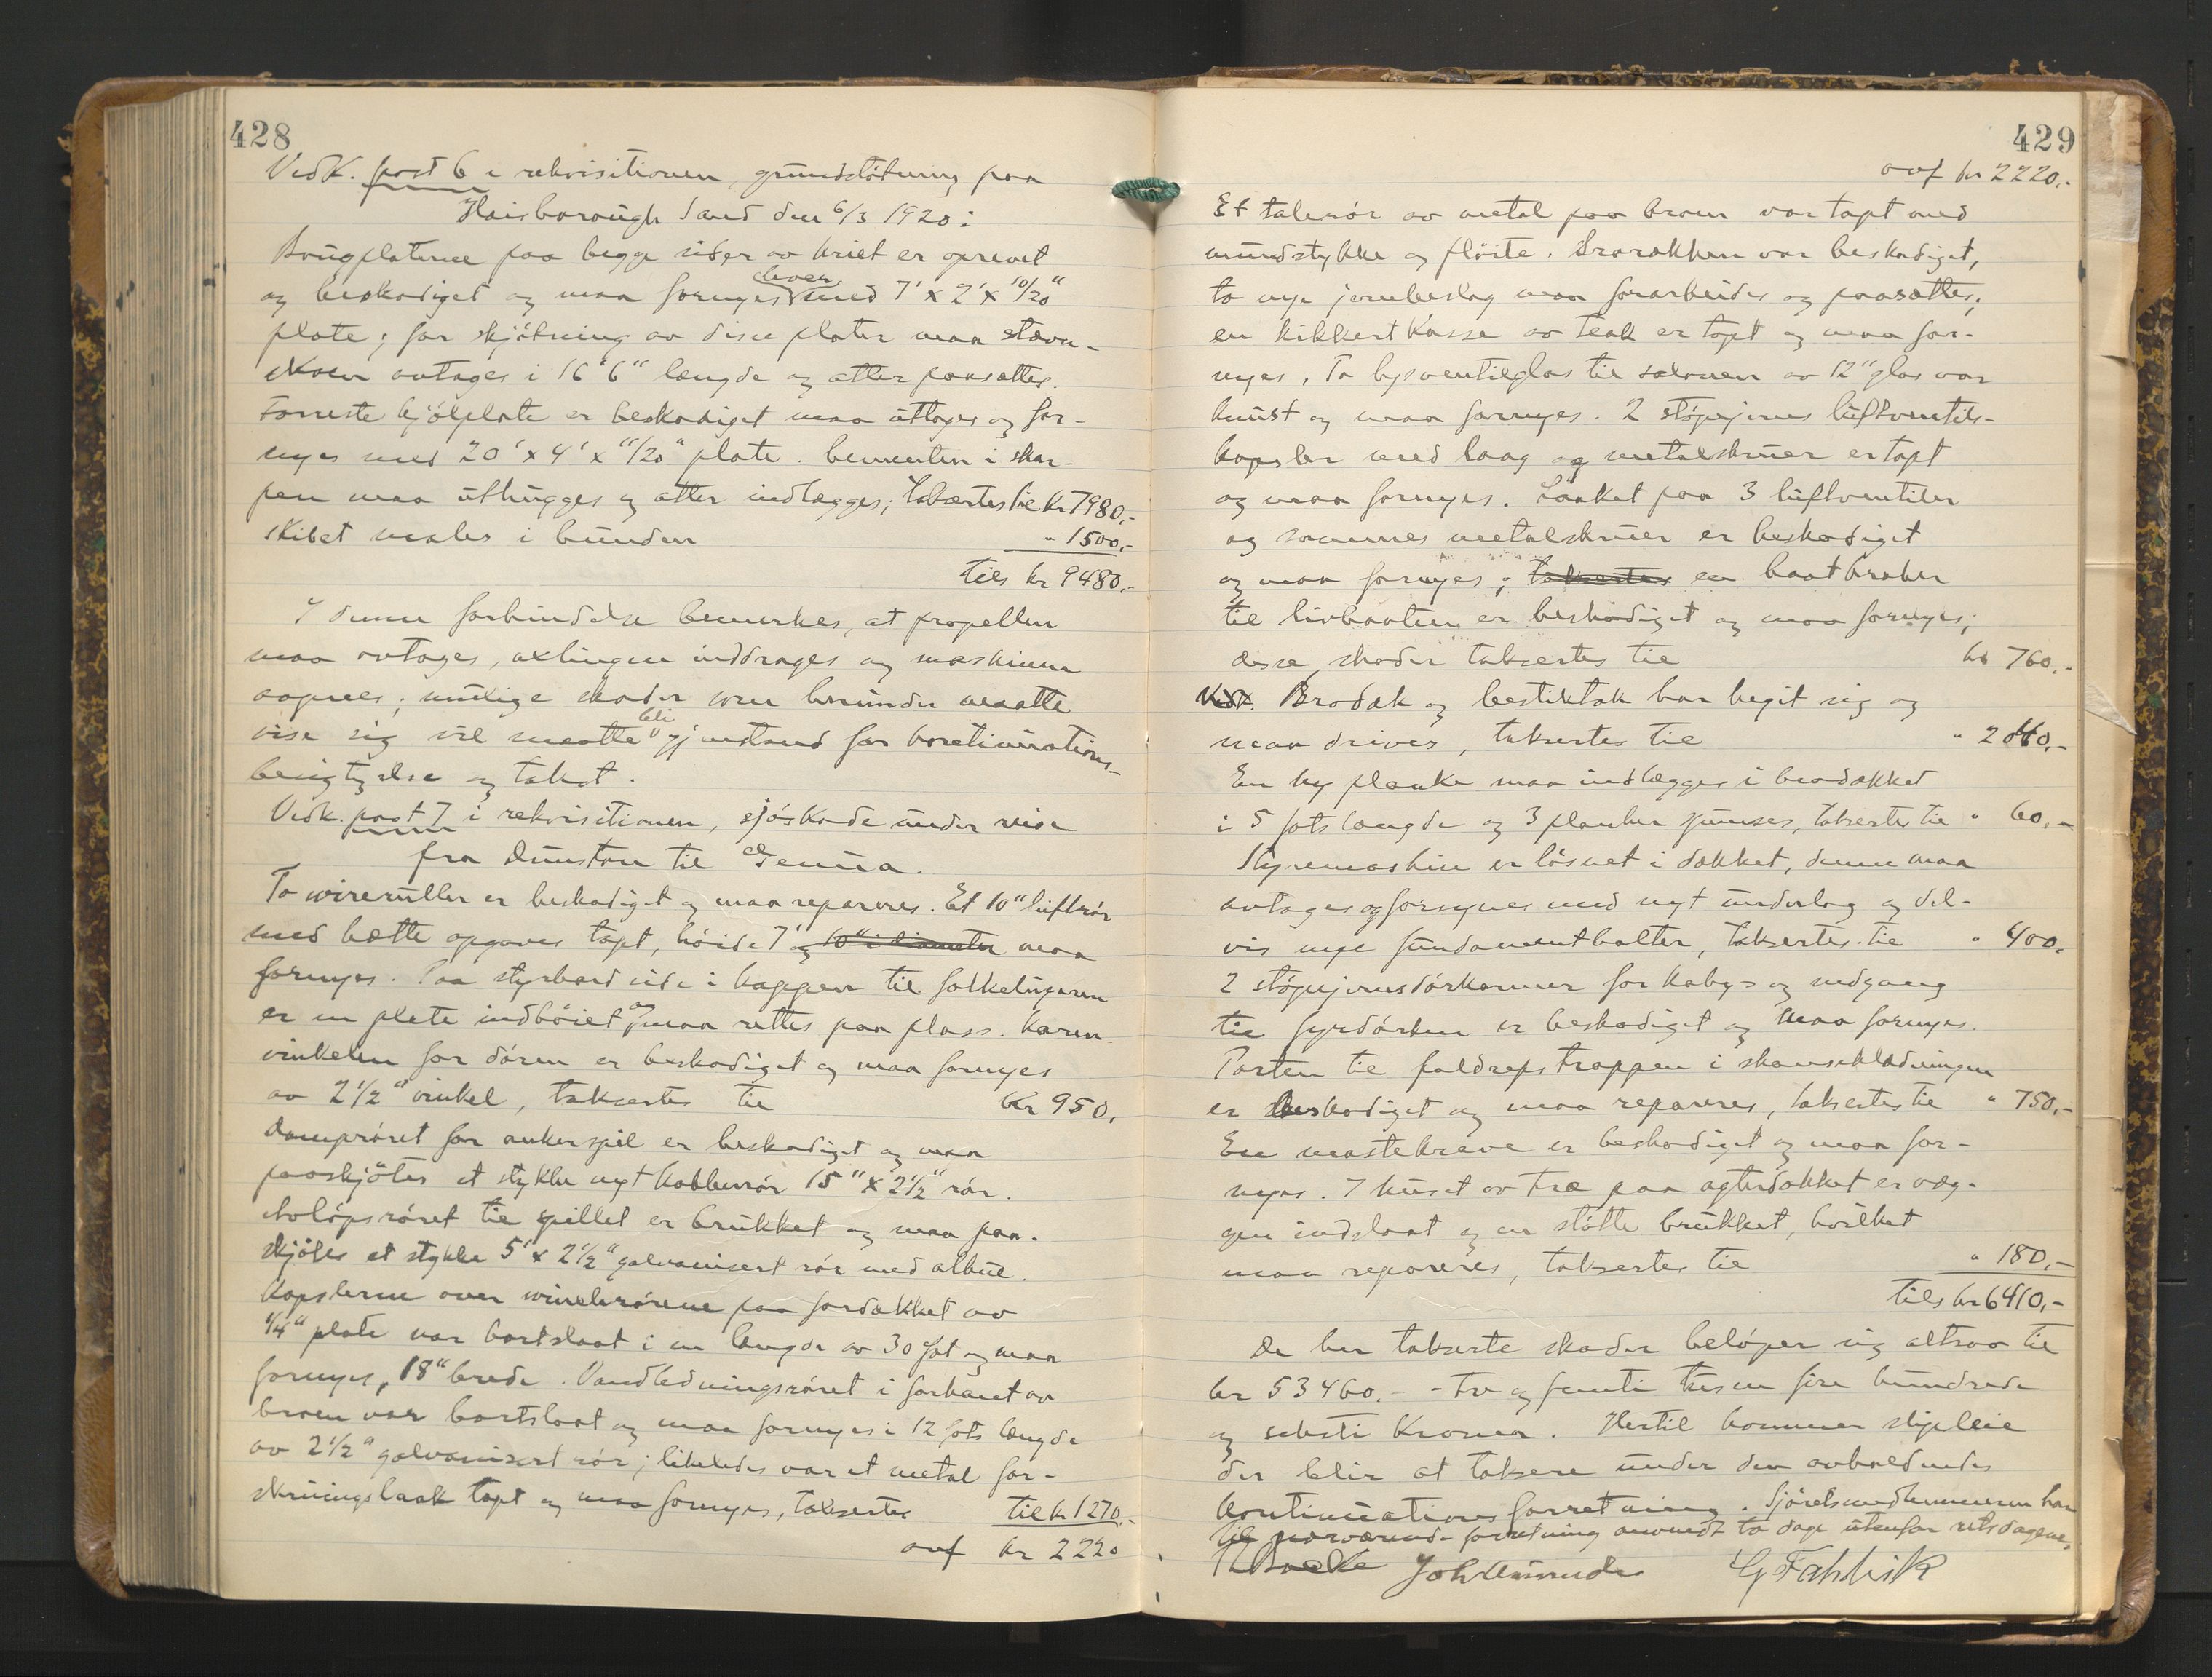 428
Vedk. post 6 i rekvisitionen, grundstötning paa
Haisborough Sand den 6/3 1920:
Bougplaterne paa begge sider av kriet er oprevet
og beskadiget og maa fornyes hver med 7' x 2' x 10/20"
plate; for skjötning av disse plater maa stævn-
skoen avtages i 16'6" længde og atter paasættes.
Forreste kjölplate er beskadiget maa uttages og for-
nyes med 20' x 4' x 11/20" plate. Cementen i skar-
pen maa uthugges og atter indlægges; takseres til kr 7980,-
Skibet males i bunden " 1500,-
tils kr 9480,-
I denne forbindelse bemerkes, at propellen
maa avtages, axlingen inddrages og maskinen
aapnes; mulige skader som herunder maatte
vise sig vil maatte bli gjenstand for kontinuations-
besigtigelse og takst.
Vedk. post 7 i rekvisitionen, sjöskade under reise
fra Dunston til Genua.
To wireruller er beskadiget og maa repareres. Et 10" luftrör
med hætte opgaves tapt, höide 7' og 10" i diameter maa
fornyes. Paa styrbord side i kappen til folkelugaren
er en plate indböiet og maa rettes paa plass. Karm-
vinkelen for dören er beskadiget og maa fornyes
av 2 1/2" vinkel, takseres til kr 950,
Dampröret for ankerspil er beskadiget og maa
paaskjötes et stykke nyt kobberrör 15" x 2 1/2" rör.
Avlöpsröret til spillet er brukket og maa paa-
skjötes et stykke 5' x 2 1/2" galvanisert rör med albue.
Kapslerne over winchrörene paa fordækket av
1/4" plate var bortslaat i en længde av 30 fot og maa
fornyes, 18" brede. Vandledningsröret i forkant av
broen var bortslaat og maa fornyes i 12 fots længde
av 2 1/2" galvanisert rör; likeledes var et metal for-
skruingslaak tapt og maa fornyes, takseres til kr 1270,-
ovf kr 2220
429
ovf kr 2220,-
Et talerör av metal paa broen var tapt med
mundstykke og flöite. Brorækken var beskadiget,
to nye jernbeslag maa forarbeides og paasættes;
en kikkertkasse av teak er tapt og maa for-
nyes. To lysventilglas til salonen av 12" glas var
knust og maa fornyes. 2 stöpejerns luftventils-
kapsler med laag og metalskruer er tapt
og maa fornyes. Laaket paa 3 luftventiler
og sammes metalskruer er beskadiget
og maa fornyes; takseres en baatkraber
til livbaaten er beskadiget og maa fornyes;
disse skader takseres til kr 760,-
Vedk. Brodæk og bestiktak har begit sig og
maa drives, takseres til " 2040,-
En ny planke maa indlægges i brodækket
i 5 fots længde og 3 planker spunses, takseres til " 60,-
Styremaskin er lösnet i dækket, denne maa
avtages og forsynes med nyt underlag og del-
vis nye fundamentbolter, takseres til " 400,-
2 stöpejernsdörkarmer for kabys og nedgang
til fyrdörken er beskadiget og maa fornyes.
Porten til faldrepstrappen i skanseklædningen
er beskadiget og maa repareres, takseres til " 750,-
En mastekrave er beskadiget og maa for-
nyes. I huset av træ paa agterdækket er væg-
gen indslaat og en stötte brukket, hvilket
maa repareres, takseres til " 180,-
tils kr 6410,-
De her takserte skader belöper sig altsaa til
kr 53460.- - Tre og femti tusen fire hundrede
og seksti Kroner. Hertil kommer slipleie
der blir at taksere under den avholdendes
kontinuations forretning. Sjöretsmedlemmerne har
til nærværende forretning anvendt to dage utenfor retsdagene.